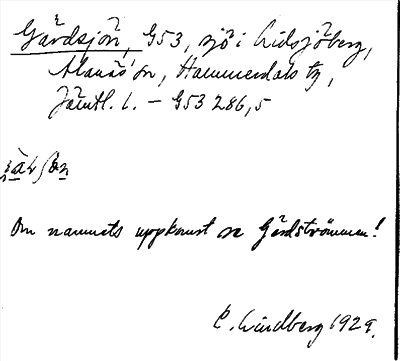 Gärdsjön, G53, sjö i Lidsjöberg,
Alanäs sn, Hammerdals tg,
Jämtl. l. – G53 286,5
Om namnets uppkomst se Gärdströmmen!
C. Lindberg 1929.